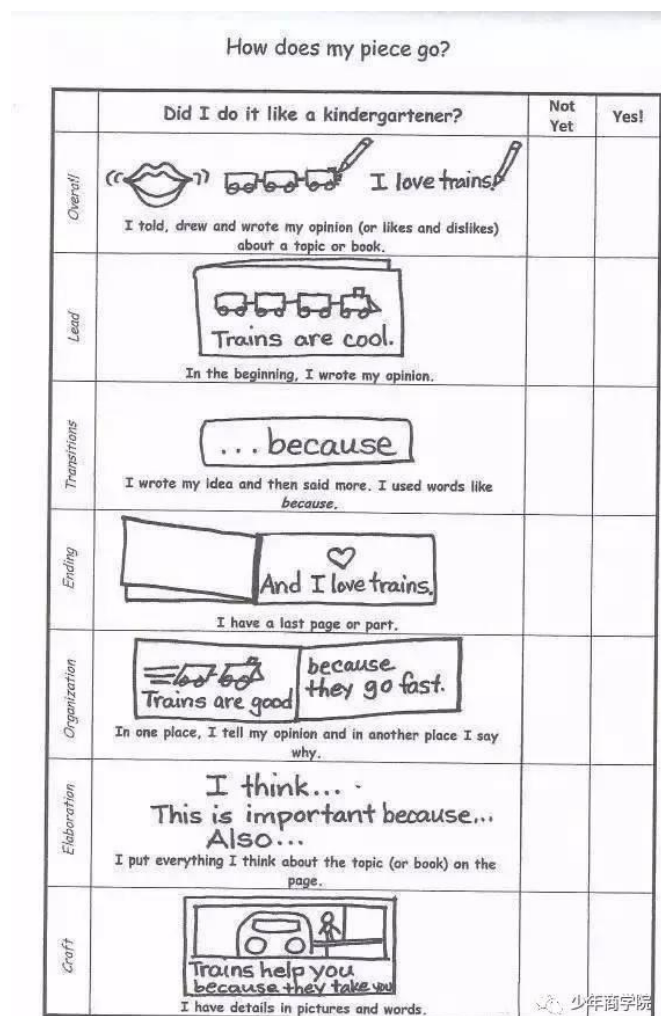 How does my piece go?
Did I do it like a kindergartener?
Not
Yet
Yes!
Overall
I love trains!
I told, drew and wrote my opinion (or likes and dislikes)
about a topic or book.
Lead
Trains are cool.
In the beginning, I wrote my opinion.
Transitions
...because
I wrote my idea and then said more. I used words like
because.
Ending
And I love trains.
I have a last page or part.
Organization
Trains are good
because
they go fast.
In one place, I tell my opinion and in another place I say
why.
Elaboration
I think...
This is important because...
Also...
I put everything I think about the topic (or book) on the
page.
Craft
Trains help you
because they take you
I have details in pictures and words.
少年商学院